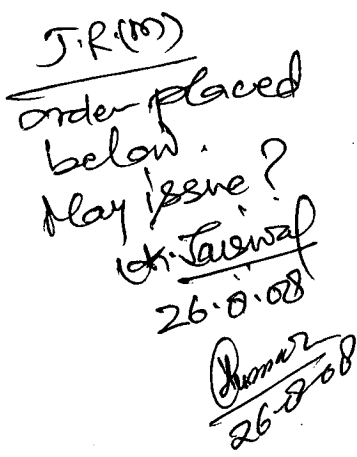 J.R.(M)
order placed
below.
May issue?
UK.Jaiswal
26.8.08
Kumar
26.8.08